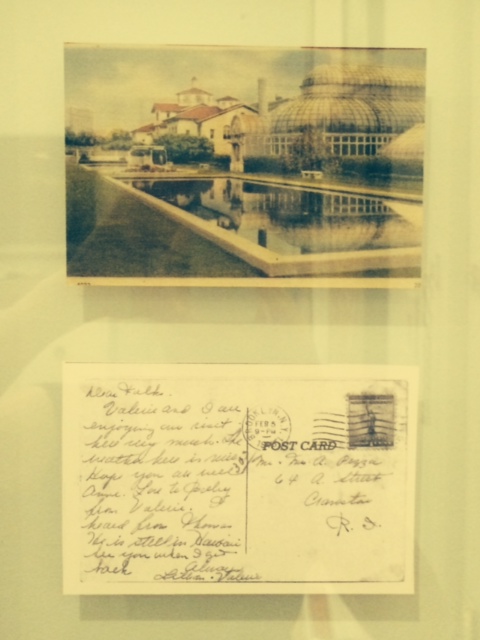 Dear Folks.
Valerie and I are
enjoying our visit
here very much. The
weather here is nice
Hope you are well
Anne. Love to
from Valerie. I
heard from Thomas
He is still in Hawaii
See you when I get
back Always
Lillian - Valerie
BROOKLYN, N.Y.
FEB 5
POST CARD
Mr. Mrs A.
64 A Street
Cranston
R. I.